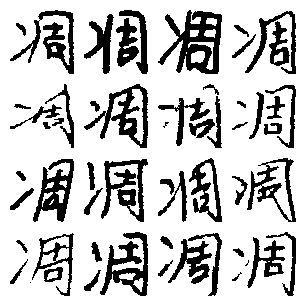 凋凋凋凋
凋凋凋凋
凋凋凋凋
凋凋凋凋